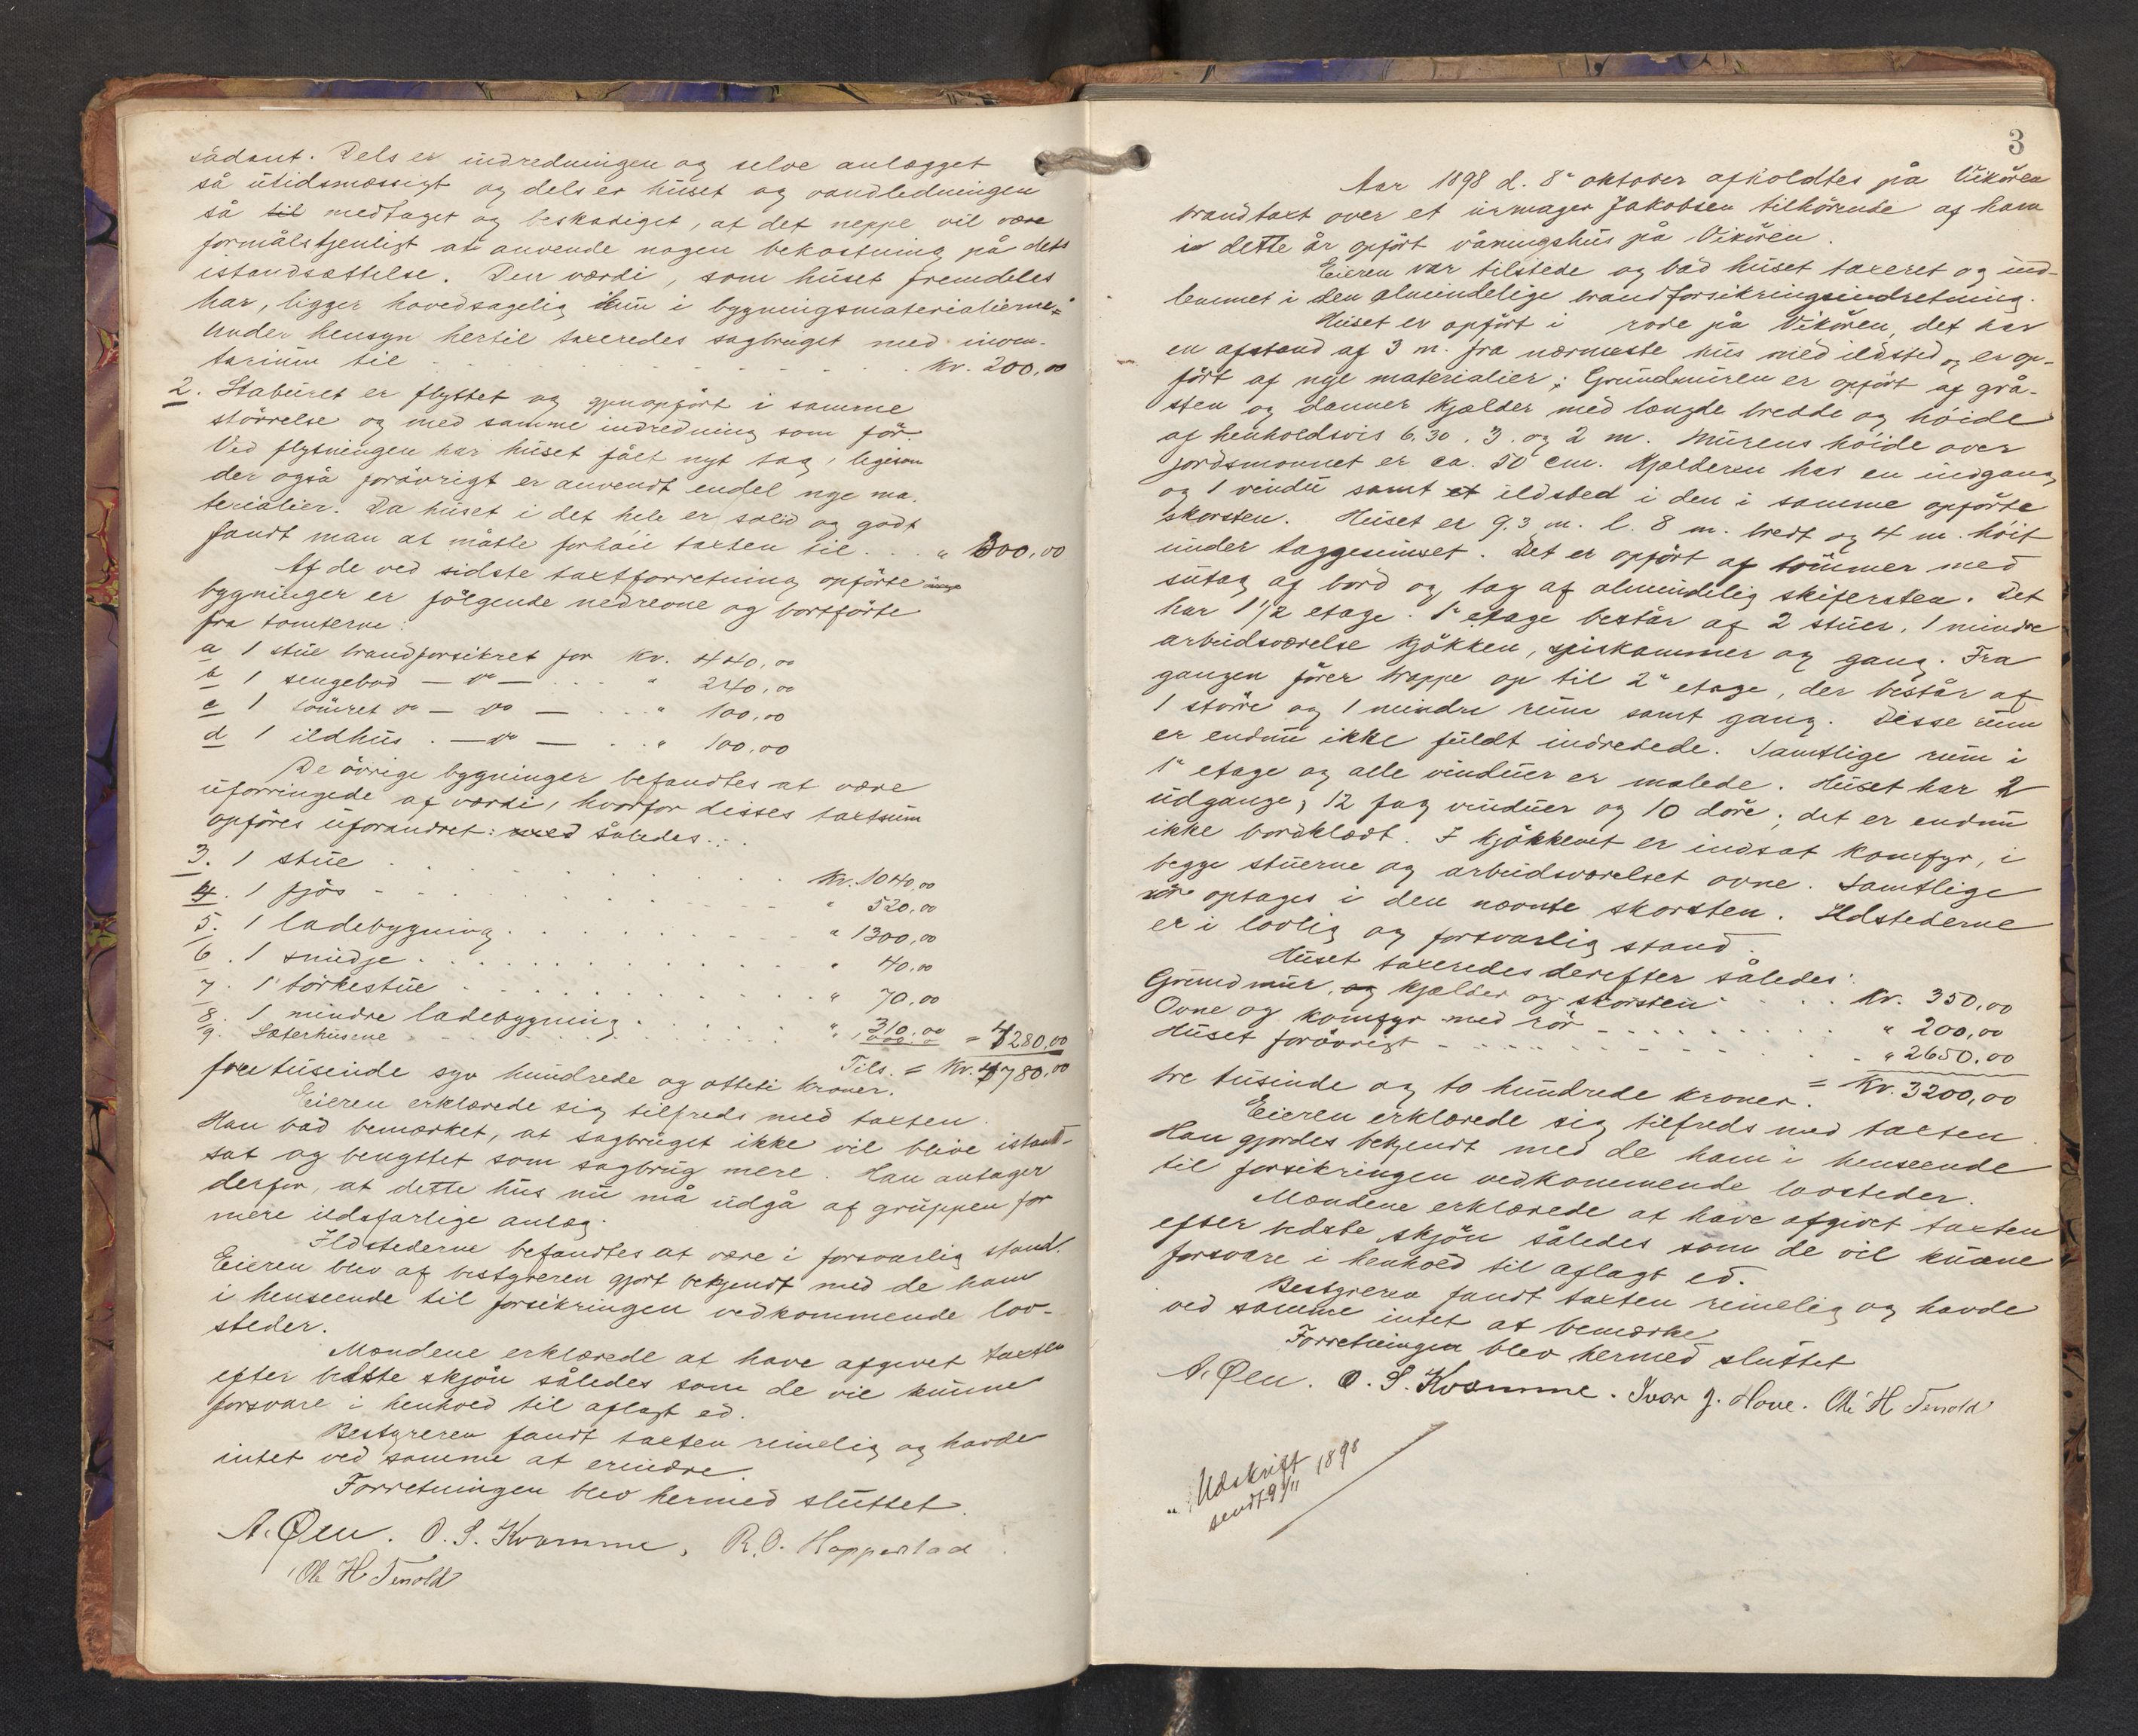 sådant. Dels er indredningen og selve anlægget
så utidsmæssigt og dels er huset og vandledningen
så til medtaget og beskadiget, at det neppe vil være
formålstjenligt at anvende nogen bekostning på dets
istandsættelse. Den værdi, som huset fremdeles
har, ligger hovedsagelig kun i bygningsmaterialierne.
Under hensyn hertil taxeredes sagbruget med inven-
tarium til kr. 200,00
2. Staburet er flyttet og gjenopført i samme
størrelse og med samme indredning som før.
Ved flytningen har huset fået nyt tag, ligesom
der også forøvrigt er anvendt endel nye ma-
terialier. Da huset i det hele er solid og godt,
fandt man at måtte forhøie taxten til . . . " 300,00
Af de ved sidste taxtforretning opførte
bygninger er følgende nedrevne og bortførte
fra tomterne:
a 1 stue brandforsikret for kr. 440,00
b 1 sengebod — do — . . . " 240,00
c 1 do — do — . . . " 100,00
d 1 ildhus . — do — . . . " 100,00
De øvrige bygninger befandtes at være
uforringede af værdi, hvorfor disses taxtsum
opføres uforandret: således:
3. 1 stue . . . kr. 1040,00
4. 1 fjøs . . . " 520,00
5. 1 ladebygning . . . " 1300,00
6. 1 smidje . . . " 40,00
7. 1 tørkestue . . . " 70,00
8. 1 mindre ladebygning . . . " 310,00 = 4280,00
9. Sæterhusene . . .
Tils. = Kr. 4780,00
fire tusinde syv hundrede og otteti kroner.
Eieren erklærede sig tilfreds med taxten.
Han bad bemærket, at sagbruget ikke vil blive istand-
sat og benyttet som sagbrug mere. Han antager
derfor, at dette hus nu må udgå af gruppen for
mere ildsfarlige anlæg.
Ildstederne befandtes at være i forsvarlig stand.
Eieren blev af bestyreren gjort bekjendt med de ham
i henseende til forsikringen vedkommende lov-
steder.
Mændene erklærede at have afgivet taxten
efter bedste skjøn således som de vil kunne
forsvare i henhold til aflagt ed.
Bestyreren fandt taxten rimelig og havde
intet ved samme at erindre.
Forretningen blev hermed sluttet.
A. Øen. O. S. Kvamme, R. O. Hopperstad.
Ole H Tenold
3
Aar 1898 d. 8de oktober afholdtes på Vikøren
brandtaxt over et urmager Jakobsen tilhørende af ham
i dette år opført våningshus på Vikøren.
Eieren var tilstede og bad huset taxeret og ind-
lemmet i den almindelige brandforsikringsindretning.
Huset er opført i rode på Vikøren, det har
en afstand af 3 m. fra nærmeste hus med ildsted og er op-
ført af nye materialier; Grundmuren er opført af grå-
sten og danner kjælder med længde bredde og høide
af henholdsvis 6,30. 3. og 2 m. Murens høide over
jordsmonnet er ca. 50 cm. Kjælderen har en indgang
og 1 vindu samt et ildsted i den i samme opførte
skorsten. Huset er 9.3 m. l. 8 m. bredt og 4 m. høit
under taggesimset. Det er opført af tømmer med
sutag af bord og tag af almindelig skifersten. Det
har 1 1/2 etage. 1ste etage består af 2 stuer, 1 mindre
arbeidsværelse kjøkken, spiskammer og gang. Fra
gangen fører trappe op til 2den etage, der består af
1 større og 1 mindre rum samt gang. Disse rum
er endnu ikke fuldt indredede. Samtlige rum i
1ste etage og alle vinduer er malede. Huset har 2
udgange, 12 fag vinduer og 10 døre; det er endnu
ikke bordklædt. I kjøkkenet er indsat komfyr, i
begge stuerne og arbeidsværelset ovne. Samtlige
rør optages i den nævnte skorsten. Ildstederne
er i lovlig og forsvarlig stand.
Huset taxeredes derefter således:
Grundmur, og kjælder og skorsten . . . Kr. 350,00
Ovne og komfyr med rør . . . " 200,00
Huset forøvrigt . . . " 2650,00
= Kr. 3200,00
tre tusinde og to hundrede kroner.
Eieren erklærede sig tilfreds med taxten.
Han gjordes bekjendt med de ham i henseende
til forsikringen vedkommende lovsteder.
Mændene erklærede at have afgivet taxten
efter bedste skjøn således som de vil kunne
forsvare i henhold til aflagt ed.
Bestyreren fandt taxten rimelig og havde
ved samme intet at bemærke.
Forretningen blev hermed sluttet
A. Øen. O. S. Kvamme. Ivar J. Hove. Ole H Tenold
Udskrift
sendt 9/11 1898